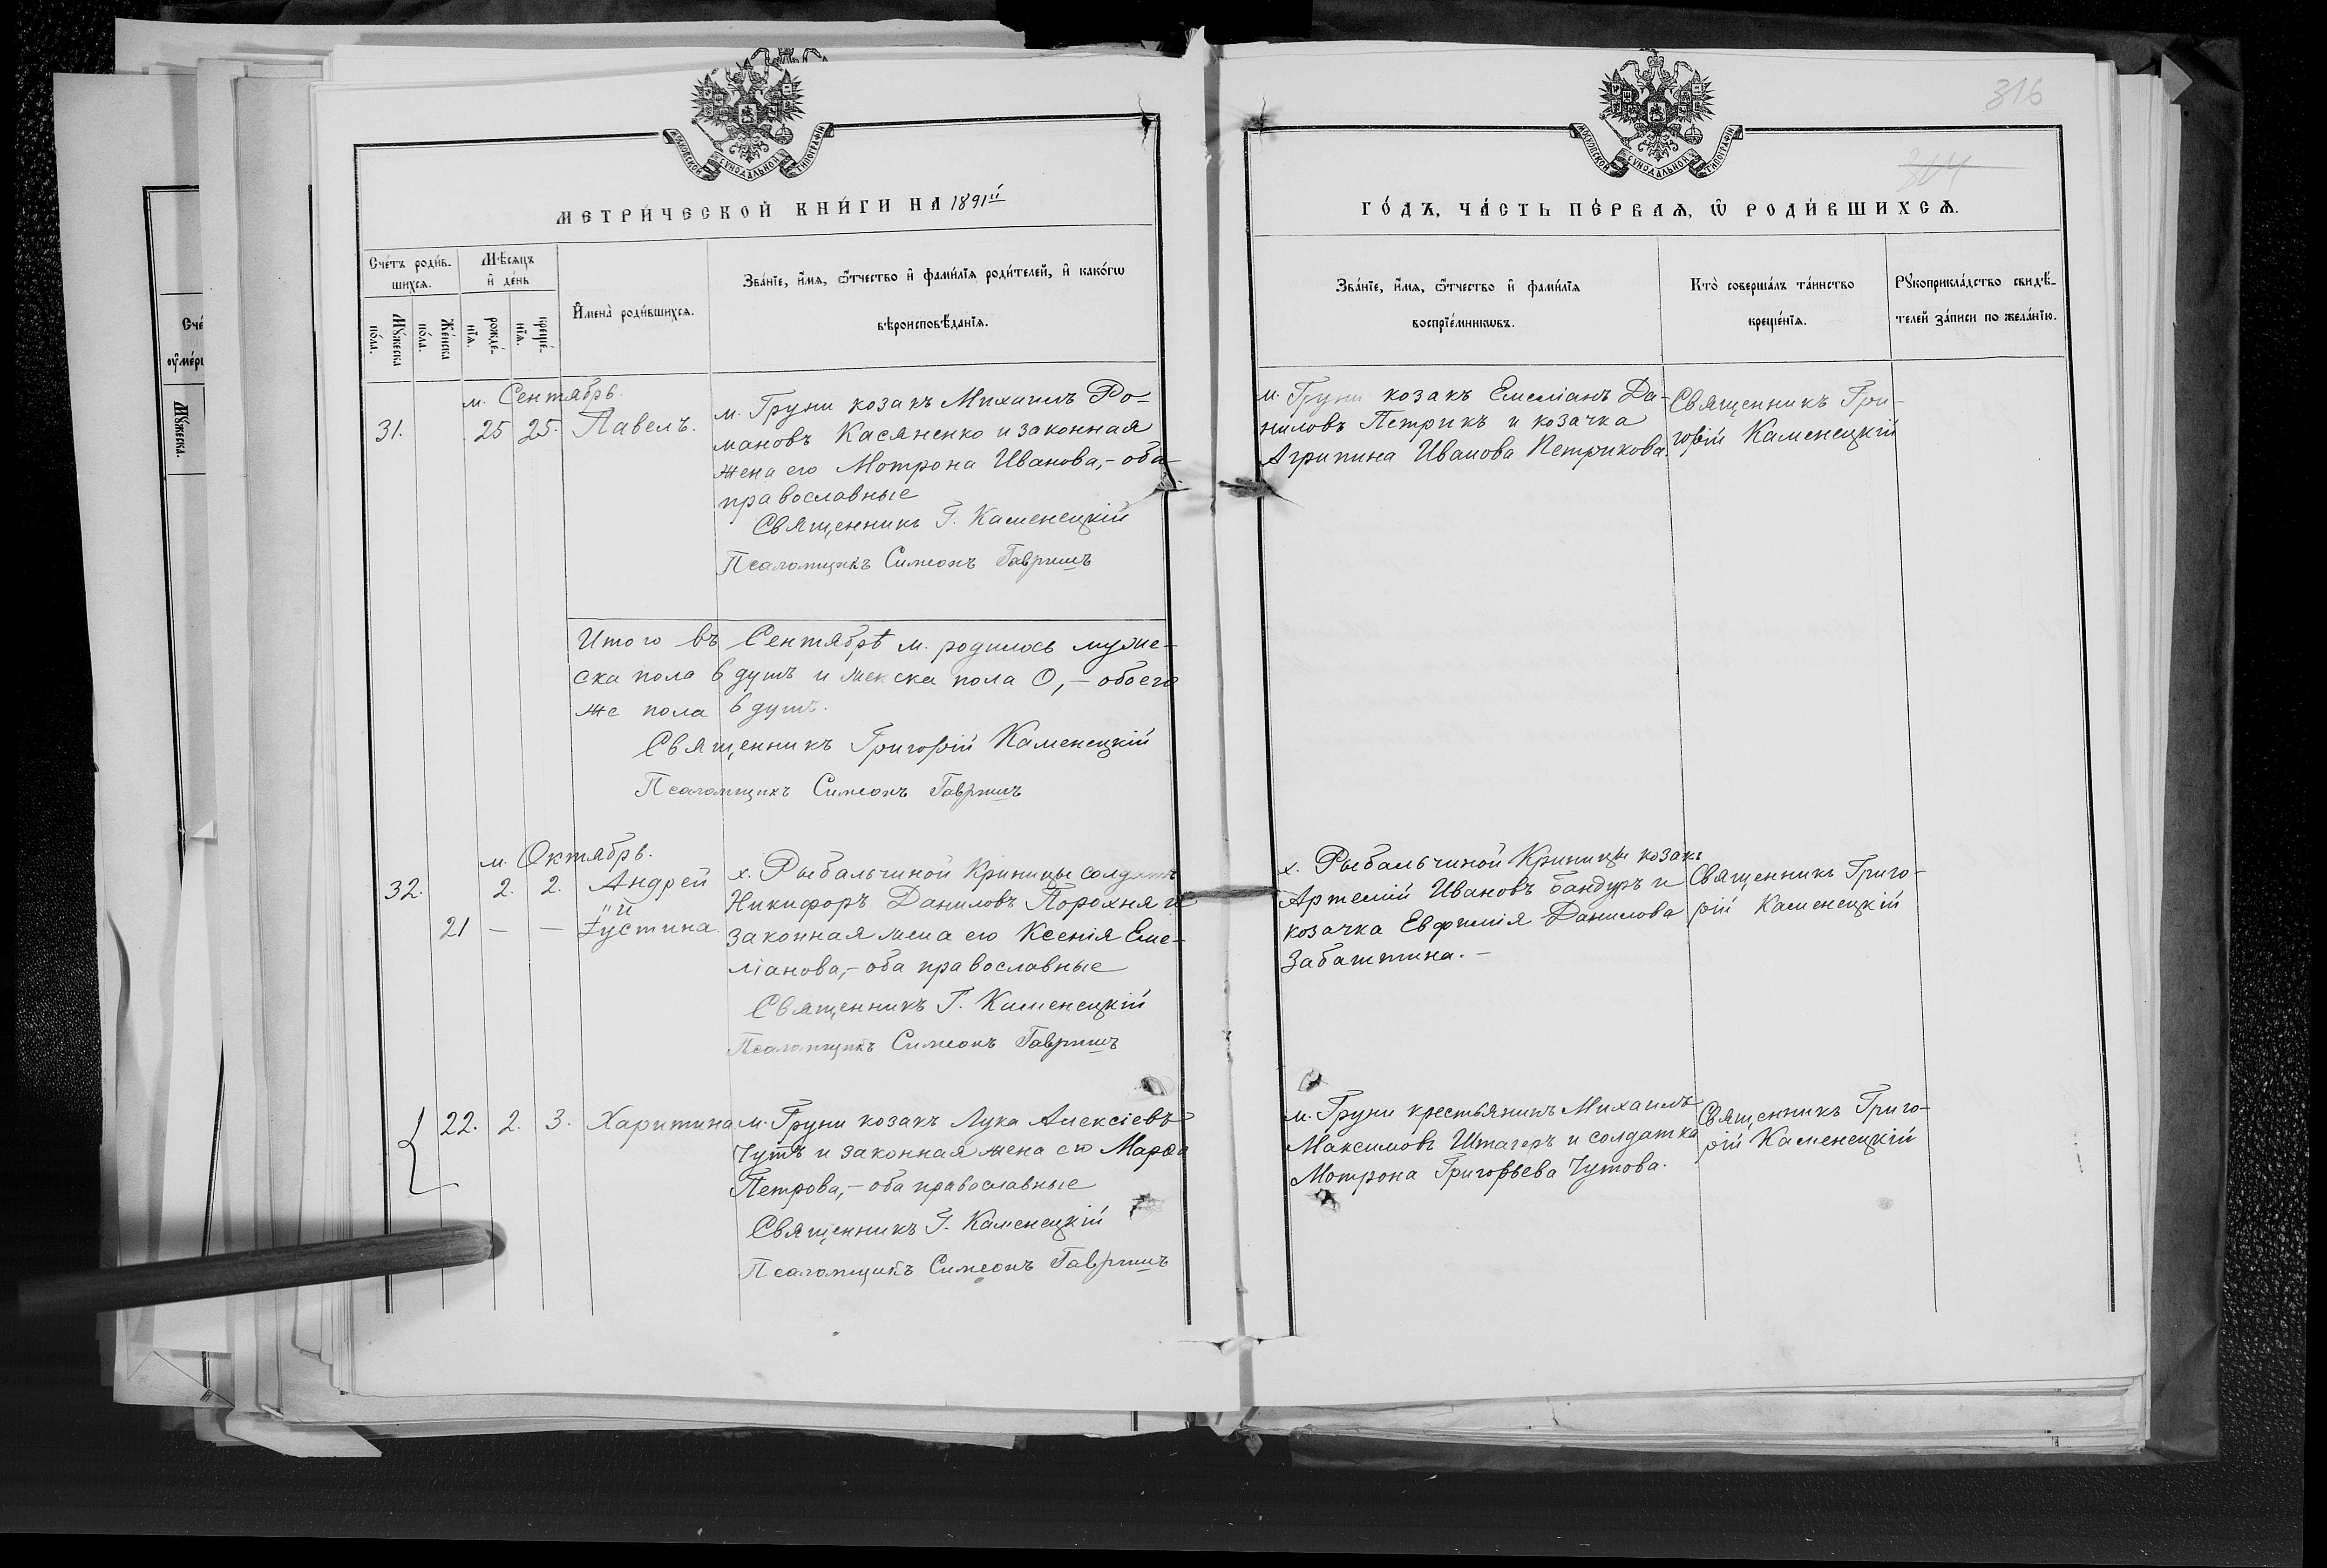 МОСКОВСКОЙ СѴНОДАЛЬНОЙ ТИПОГРАФІИ
МЕТРИ́ЧЕСКОЙ КНИ́ГИ НА 1891й
Сче́тъ роди́в-
шихсѧ.
Мꙋ́жеска
по́ла.
Же́нска
по́ла.
Мѣ́сѧцъ
и҆ де́нь
рожде́-
нїѧ.
креще́-
нїѧ.
И҆мена̀ роди́вшихсѧ.
Зва́нїе, и҆́мѧ, ѻ҆́тчество и҆ фами́лїѧ роди́телей, и҆ како́гѡ
вѣроисповѣ́данїѧ.
м. Сентябрь.
31. 25 25. Павелъ.
м. Груни козакъ Михаилъ Ро-
мановъ Касяненко и законная
жена его Мотрона Иванова,- оба
православные
Священникъ Г. Каменецкій
Псаломщикъ Симеонъ Гавришъ
Итого въ Сентябрѣ м. родилось муже-
ска пола 6 душъ и женска пола 0,- обоего
же пола 6 душъ.
Священникъ Григорій Каменецкій
Псаломщикъ Симеонъ Гавришъ
м. Октябрь.
32. 2. 2. Андрей
и
21 — — Іустина.
х. Рыбальчиной Криницы солдатъ
Никифоръ Даниловъ Порохня и
законная жена его Ксенія Еме-
ліанова,- оба православные
Священникъ Г. Каменецкій
Псаломщикъ Симеонъ Гавришъ
22. 2. 3. Харитина
м. Груни козакъ Лука Алексіевъ
Чутъ и законная жена его Марѳа
Петрова,- оба православные
Священникъ Г. Каменецкій
Псаломщикъ Симеонъ Гавришъ
316
304
МОСКОВСКОЙ СѴНОДАЛЬНОЙ ТИПОГРАФІИ
ГО́ДЪ, ЧА́СТЬ ПЕ́РВАѦ, Ѡ҆ РОДИ́ВШИХСѦ.
Зва́нїе, и҆́мѧ, ѻ҆́тчество и҆ фами́лїѧ
воспрїе́мникѡвъ.
Кто̀ соверша́лъ та́инство
креще́нїѧ.
Рꙋкоприкла́дство свидѣ́-
телей за́писи по жела́нїю.
м. Груни козакъ Емеліанъ Да-
ниловъ Петрикъ и козачка
Агрипина Иванова Петрикова.
Священникъ Гри-
горій Каменецкій
х. Рыбальчиной Криницы козакъ
Артемій Ивановъ Бандуръ и
козачка Евфимія Данилова
Забаштина.-
Священникъ Григо-
рій Каменецкій
м. Груни крестьянинъ Михаилъ
Максимовъ Штагеръ и солдатка
Мотрона Григорьева Чутова.
Священникъ Григо-
рій Каменецкій